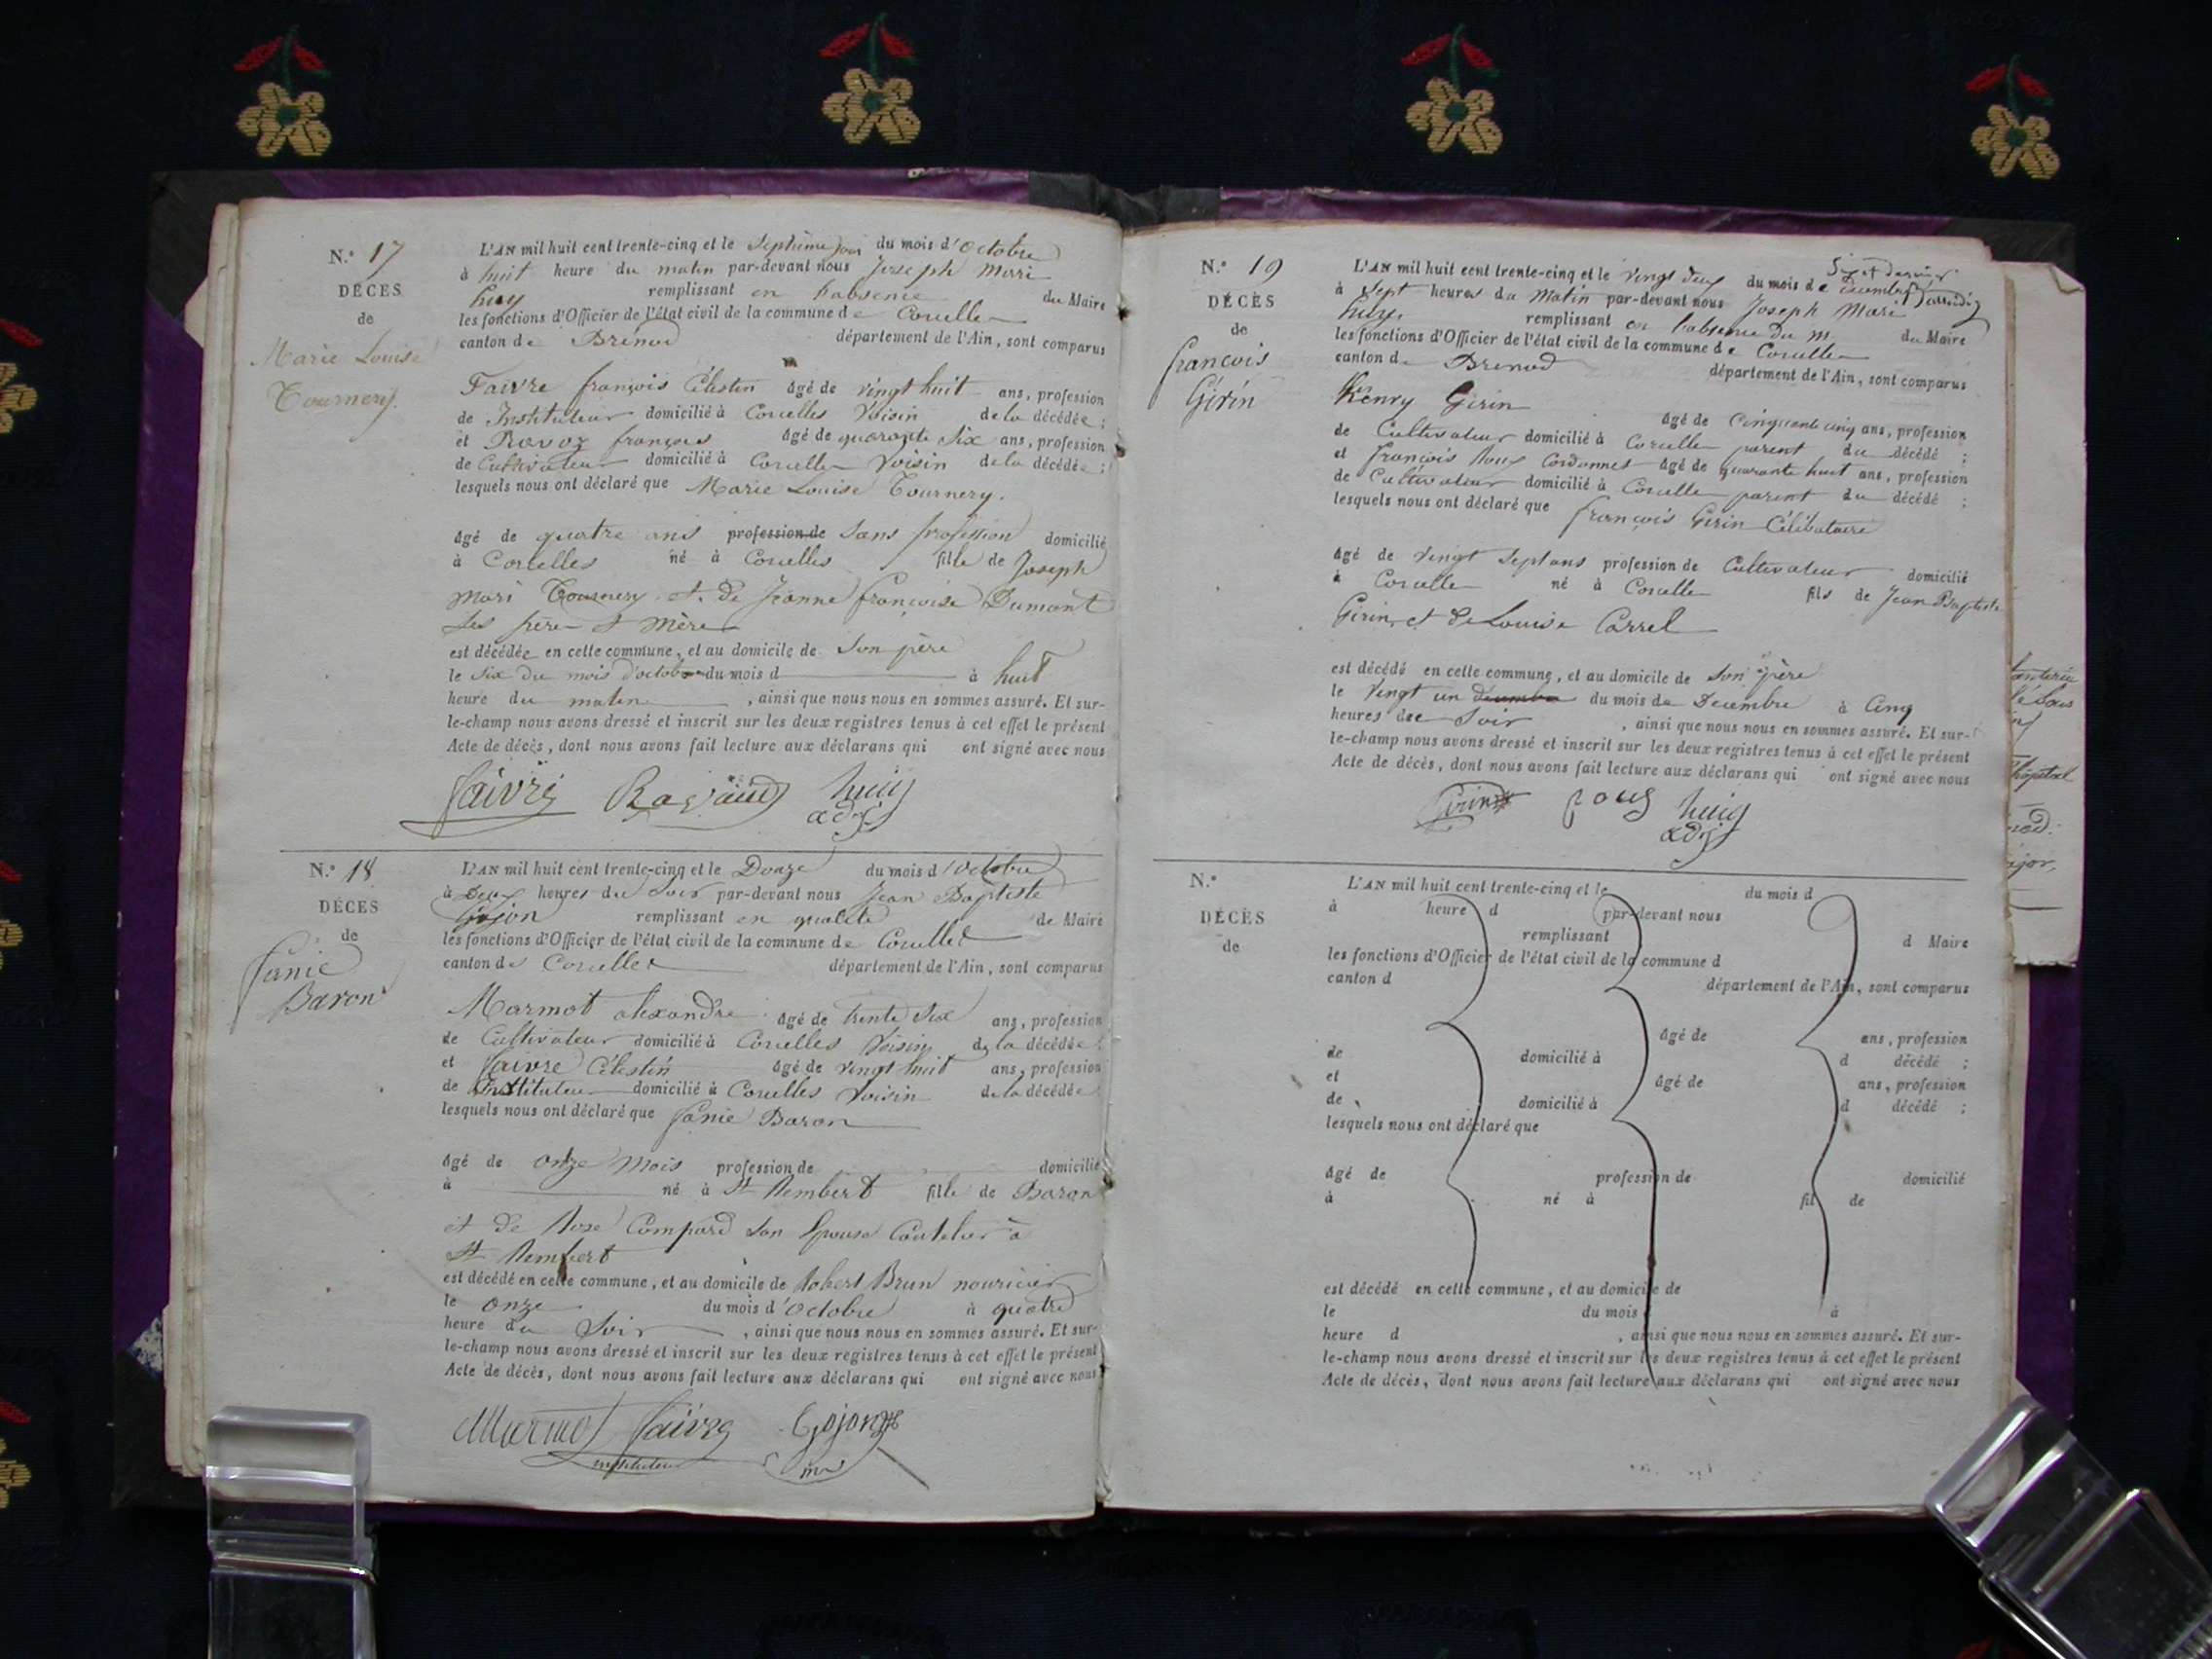 N.° 17
DÉCÈS
de
Marie Louise
Tournery.
L'AN mil huit cent trente-cinq et le Septième jour du mois d'Octobre
à huit heure du matin par-devant nous Joseph Mari
huy remplissant en l'absence du Maire
les fonctions d'Officier de l'état civil de la commune de Corcelles
canton de Brénod département de l'Ain, sont comparus
Faivre françois Célestin âgé de vingt huit ans, profession
de Instituteur domicilié à Corcelles Voisin de la décédée ;
et Ravoz françois âgé de quarante Six ans, profession
de Cultivateur domicilié à Corcelles Voisin de la décédée ;
lesquels nous ont déclaré que Marie Louise Tournery.
âgé de quatre ans profession de Sans profession domicilié
à Corcelles né à Corcelles fille de Joseph
Mari Tournery et de Jeanne françoise Dumont
Ses père et Mère
est décédée en cette commune, et au domicile de Son père
le Six du mois d'octobre du mois d à huit
heure du matin , ainsi que nous nous en sommes assuré. Et sur-
le-champ nous avons dressé et inscrit sur les deux registres tenus à cet effet le présent
Acte de décès, dont nous avons fait lecture aux déclarans qui ont signé avec nous
faivre huy
adj
N.° 18
DÉCÈS
de
fanie
Baron
L'AN mil huit cent trente-cinq et le Douze du mois d'Octobre
à Deux heures du Soir par-devant nous Jean Baptiste
Gojon remplissant en qualité de Maire
les fonctions d'Officier de l'état civil de la commune de Corcelles
canton de Corcelles département de l'Ain, sont comparus
Marmot alexandre âgé de trente Six ans, profession
de Cultivateur domicilié à Corcelles Voisin de la décédée ;
et faivre Célestin âgé de vingt huit ans, profession
de Instituteur domicilié à Corcelles Voisin de la décédée
lesquels nous ont déclaré que fanie Baron
âgé de onze Mois profession de domicilié
à né à St Rembert fille de Baron
et de Rose Compard Son Epouse Coutelier à
St Rembert
est décédé en cette commune, et au domicile de Robert Brun nouricier
le onze du mois d'Octobre à quatre
heure du Soir , ainsi que nous nous en sommes assuré. Et sur-
le-champ nous avons dressé et inscrit sur les deux registres tenus à cet effet le présent
Acte de décès, dont nous avons fait lecture aux déclarans qui ont signé avec nous
Marmot faivre Gojon
instituteur mre
N.° 19
DÉCÈS
de
françois
Girin
L'AN mil huit cent trente-cinq et le vingt deux du mois de décembre
à Sept heures du Matin par-devant nous Joseph Mari
huy remplissant en l'absence du m du Maire
les fonctions d'Officier de l'état civil de la commune de Corcelles
canton de Brenod département de l'Ain, sont comparus
Henry Girin âgé de Cinquante cinq ans, profession
de Cultivateur domicilié à Corcelles parent du décédé ;
et françois Roux Cordonnet âgé de quarante huit ans, profession
de Cultivateur domicilié à Corcelles parent du décédé ;
lesquels nous ont déclaré que françois Girin Célibataire
âgé de vingt Sept ans profession de Cultivateur domicilié
à Corcelles né à Corcelles fils de Jean Baptiste
Girin, et de Louise Carrel
est décédé en cette commune, et au domicile de Son père
le vingt un décembre du mois de Décembre à Cinq
heures du Soir , ainsi que nous nous en sommes assuré. Et sur-
le-champ nous avons dressé et inscrit sur les deux registres tenus à cet effet le présent
Acte de décès, dont nous avons fait lecture aux déclarans qui ont signé avec nous
Girin roux huy
adj
N.°
DÉCÈS
de
L'AN mil huit cent trente-cinq et le du mois d
à heure d par-devant nous
remplissant d Maire
les fonctions d'Officier de l'état civil de la commune d
canton d département de l'Ain, sont comparus
âgé de ans, profession
de domicilié à d décédé ;
et âgé de ans, profession
de domicilié à d décédé ;
lesquels nous ont déclaré que
âgé de profession de domicilié
à né à fil de
est décédé en cette commune, et au domicile de
le du mois d à
heure d , ainsi que nous nous en sommes assuré. Et sur-
le-champ nous avons dressé et inscrit sur les deux registres tenus à cet effet le présent
Acte de décès, dont nous avons fait lecture aux déclarans qui ont signé avec nous